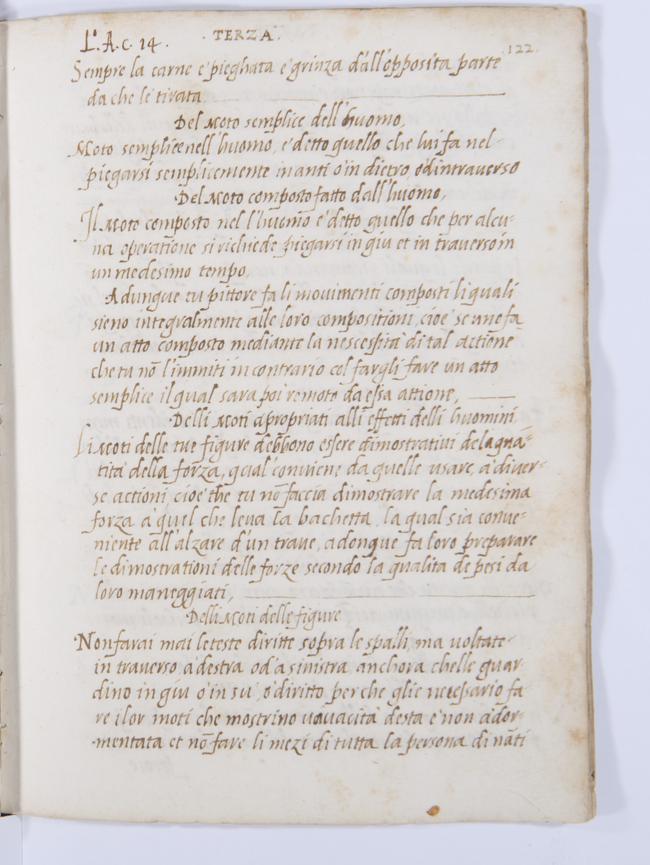 L°. A. c. 14. · TERZA ·
122.
Sempre la carne e pieghata e grinza dall'opposita parte
da che le tirata
Del Moto semplice dell'huomo,
Moto semplice nell'huomo, e detto quello che lui fa nel-
piegarsi semplicemente inanti o in dietro, od intraverso
Del Moto composto fatto dall'huomo,
Il Moto composto nel l'huomo e detto quello che per alcu-
na operatione si richiede piegarsi in giu et in traverso in
un medesimo tempo,
Adunque tu pittore fa li movimenti composti li quali
sieno integralmente alle loro compositioni, cioe se une fa
un atto composto mediante la nescessita di tal actione
che tu nõ l'immiti in contrario col fargli fare un atto
semplice il qual sara poi remoto da essa attione,
Delli Moti apropriati alli effetti delli huomini
Li Moti delle tue figure debbono essere dimostrativi de la quã-
tita della forza, qual conviene da quelle usare, a diver-
se actioni cioe che tu nõ faccia dimostrare la medesima
forza a quel che leva la bachetta, la qual sia conve-
niente all'alzare d'un trave, adonque fa loro preparare
le dimostrationi delle forze secondo la qualita de pesi da
loro maneggiati,
Delli Moti delle figure
Non farai mai le teste diritte sopra le spalli, ma voltate
in traverso a destra od a sinistra anchora chelle guar-
dino in giu o in su, o diritto perche glie necessario fa
re i lor moti che mostrino vivacità desta e non ador-
mentata et nõ fare li mezi di tutta la persona dinãti